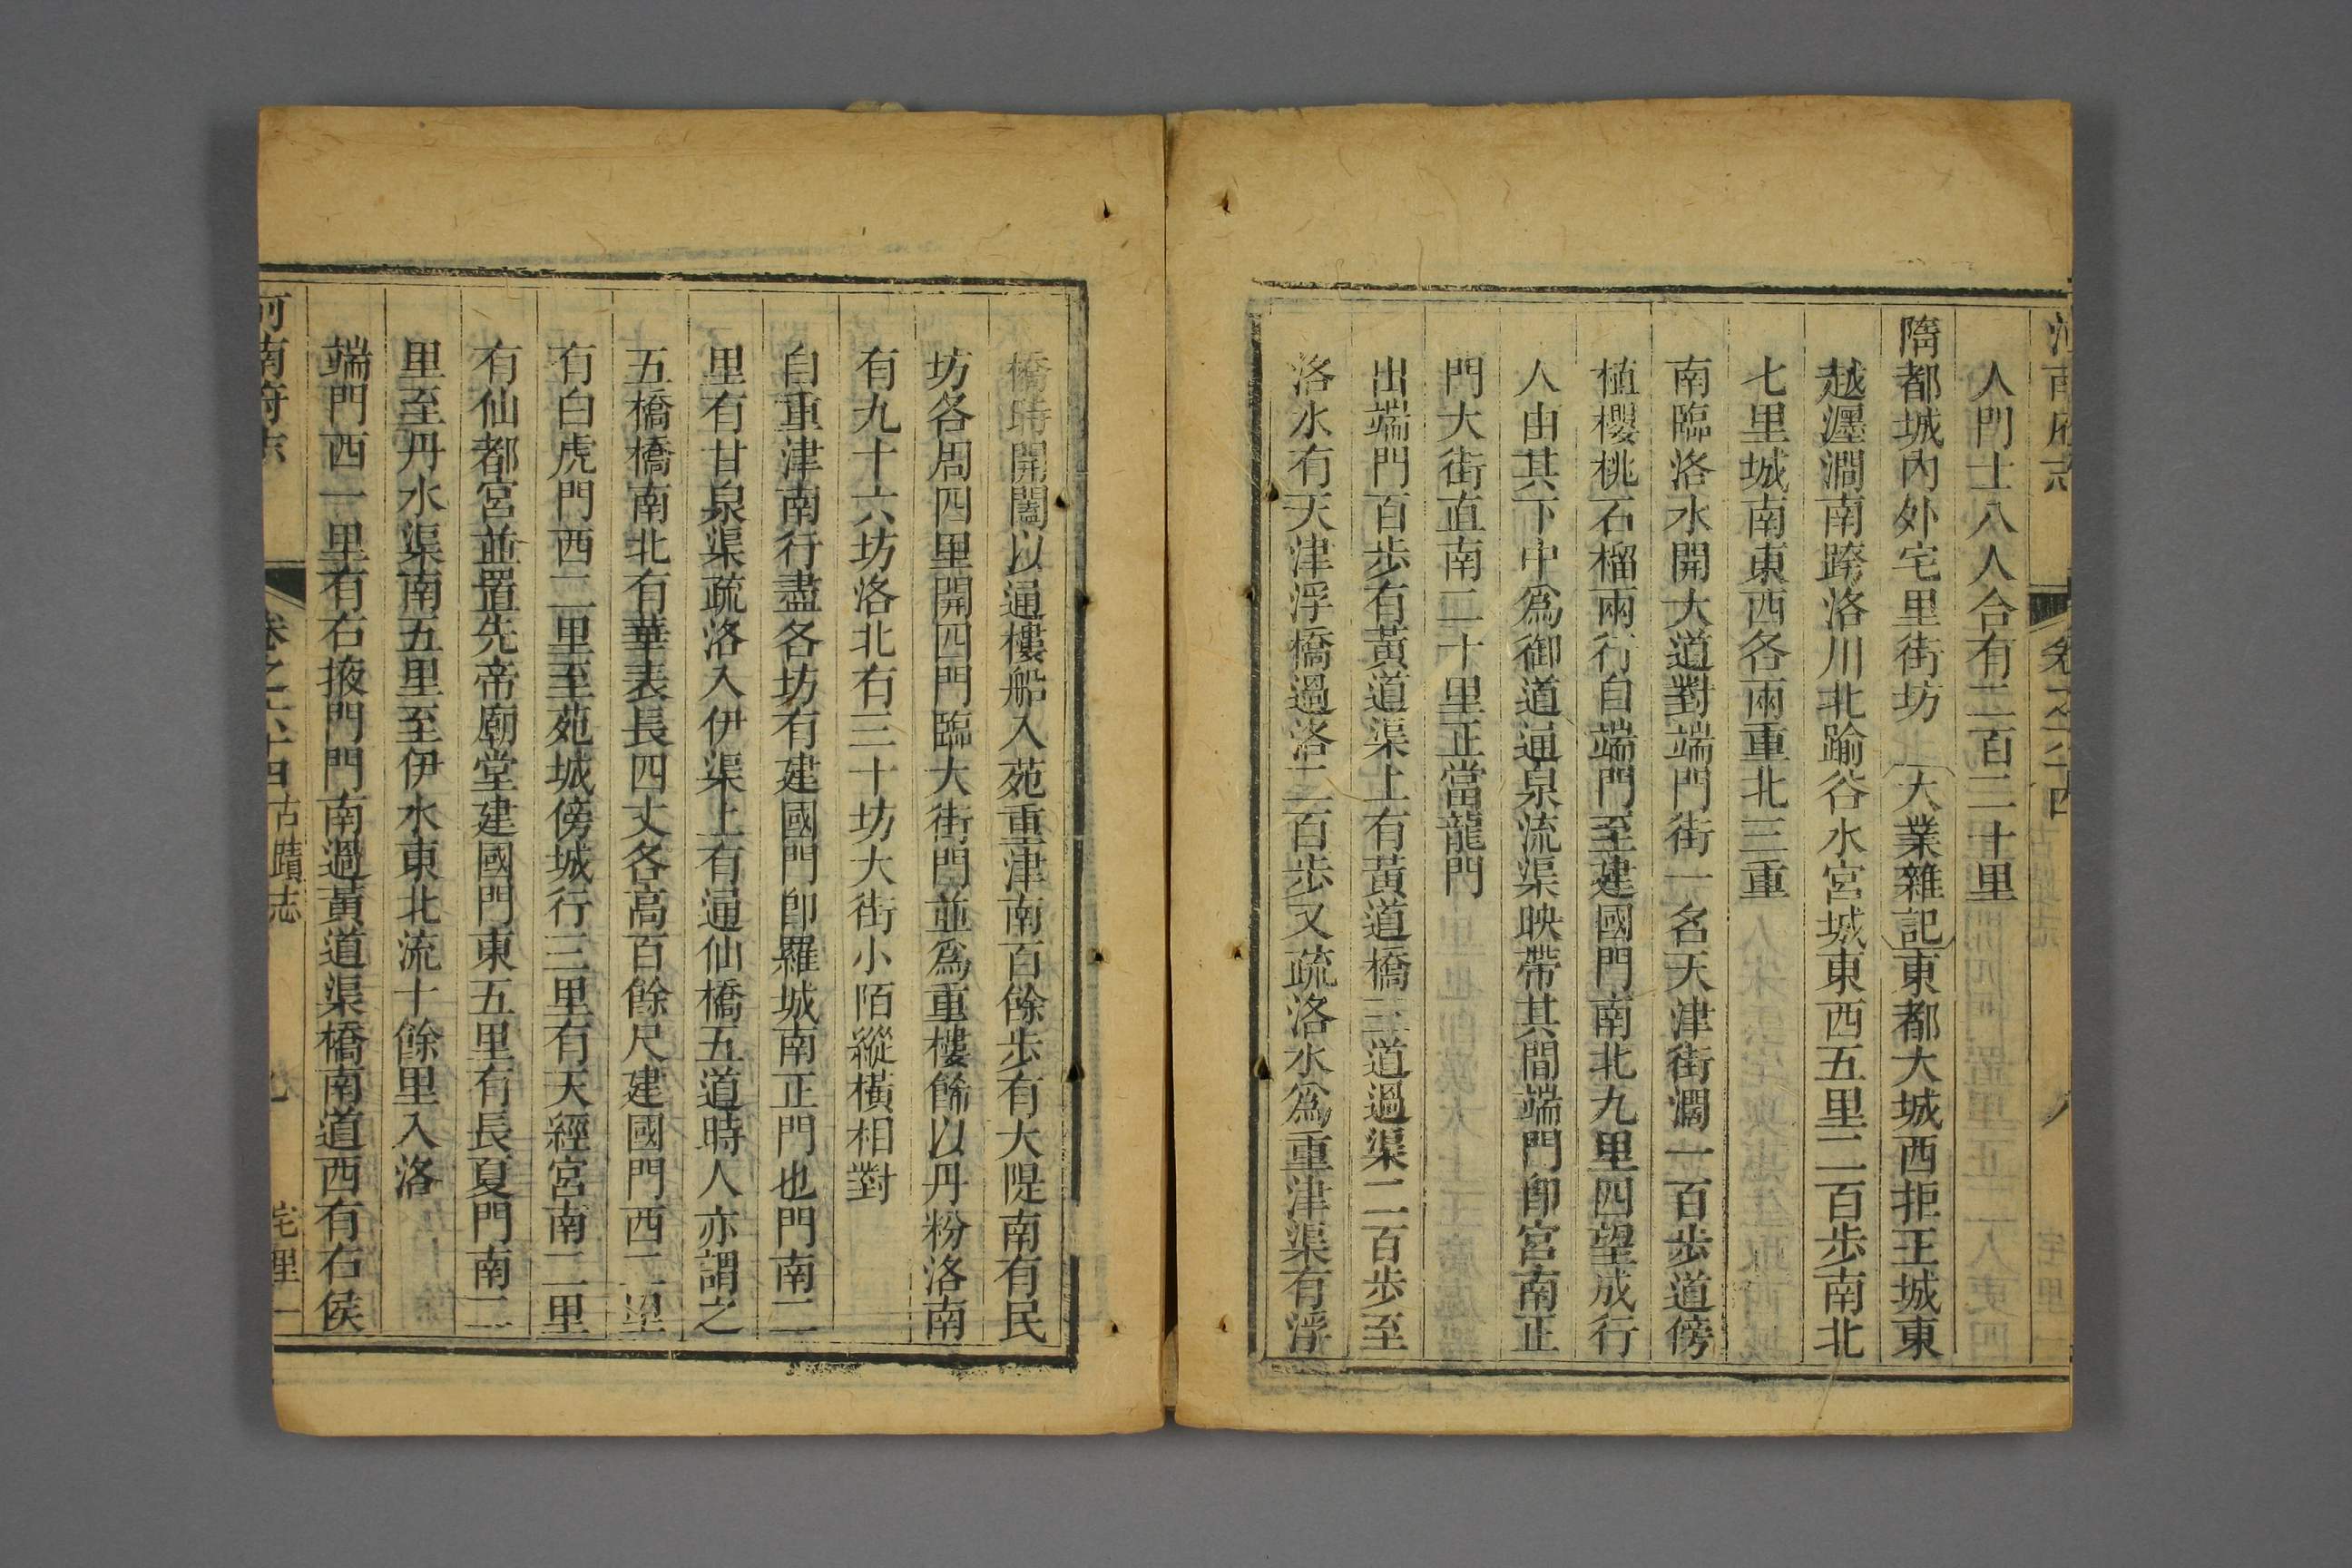 河南府志 卷之六十四 八
人門士八人合有二百三十里
隋都城內外宅里街坊 大業雜記東都大城西拒王城東
越瀍澗南跨洛川北踰谷水宮城東西五里二百步南北
七里城南東西各兩重北三重
南臨洛水開大道對端門街一名天津街濶一百步道傍
植櫻桃石榴兩行自端門至建國門南北九里四望成行
人由其下中爲御道通泉流渠映帶其間端門卽宮南正
門大街直南二十里正當龍門
出端門百步有黃道渠上有黃道橋三道過渠二百步至
洛水有天津浮橋過洛二百步又疏洛水爲重津渠有浮
橋時開闔以通樓船入苑重津南百餘步有大隄南有民
坊各周四里開四門臨大街門並爲重樓餙以丹粉洛南
有九十六坊洛北有三十坊大街小陌縱橫相對
自重津南行盡各坊有建國門卽羅城南正門也門南二
里有甘泉渠疏洛入伊渠上有通仙橋五道時人亦謂之
五橋橋南北有華表長四丈各高百餘尺建國門西二里
有白虎門西二里至苑城傍城行三里有天經宮南二里
有仙都宮並置先帝廟堂建國門東五里有長夏門南二
里至丹水渠南五里至伊水東北流十餘里入洛
端門西一里有右掖門門南過黃道渠橋南道西有右侯
河南府志 卷之六十四 古蹟志 宅里一